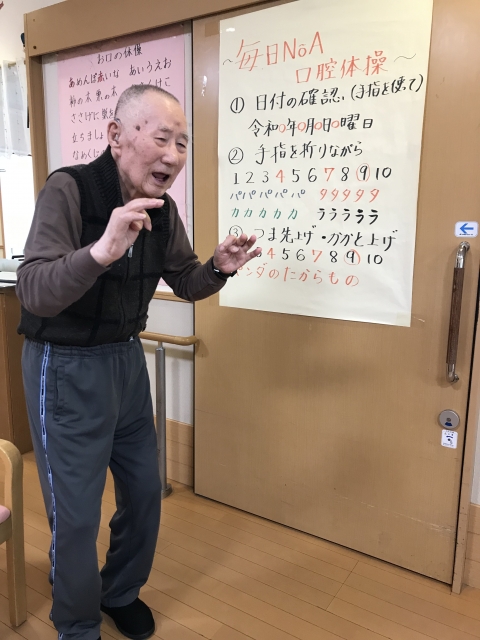 お口の体操
あめんぼ赤いな あいうえお
柿の木 栗の木
ささげに
立ちましょ
毎日NoA
口腔体操〜
① 日付の確認、(手指を使て)
令和○年○月○日○曜日
② 手指を折りながら
1 2 3 4 5 6 7 8 9 10
パパパパパ タタタタタ
カカカカカ ラララララ
③ つま先上げ・かかと上げ
4 5 6 7 8 9 10
パンダのたからもの